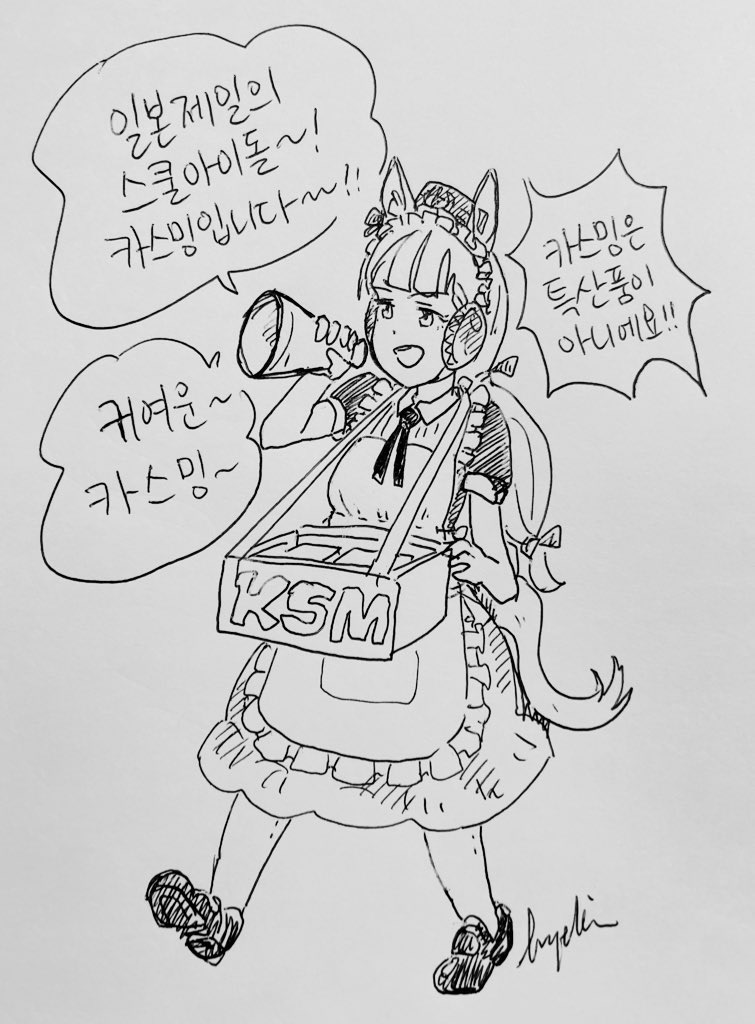 일본제일의
스쿨아이돌~!
카스밍입니다~!!
카스밍은
특산품이
아니에요!!
귀여운~
카스밍~
KSM